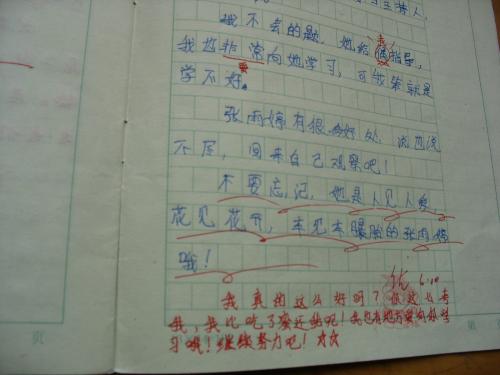 我不会的题，她给我指导，
我故非常向她学习，可我笨就是
学不好。
张雨婷有很多好处，说也说
不尽，回来自己观察吧！
不要忘记，她是人见人爱，
花见花开，车见车爆胎的张雨婷
哦！
优 6.10
我真的这么好吗？你这么夸
我，我比吃了蜜还甜呢！我也有地方要向你学
习哦！继续努力吧！
页
第